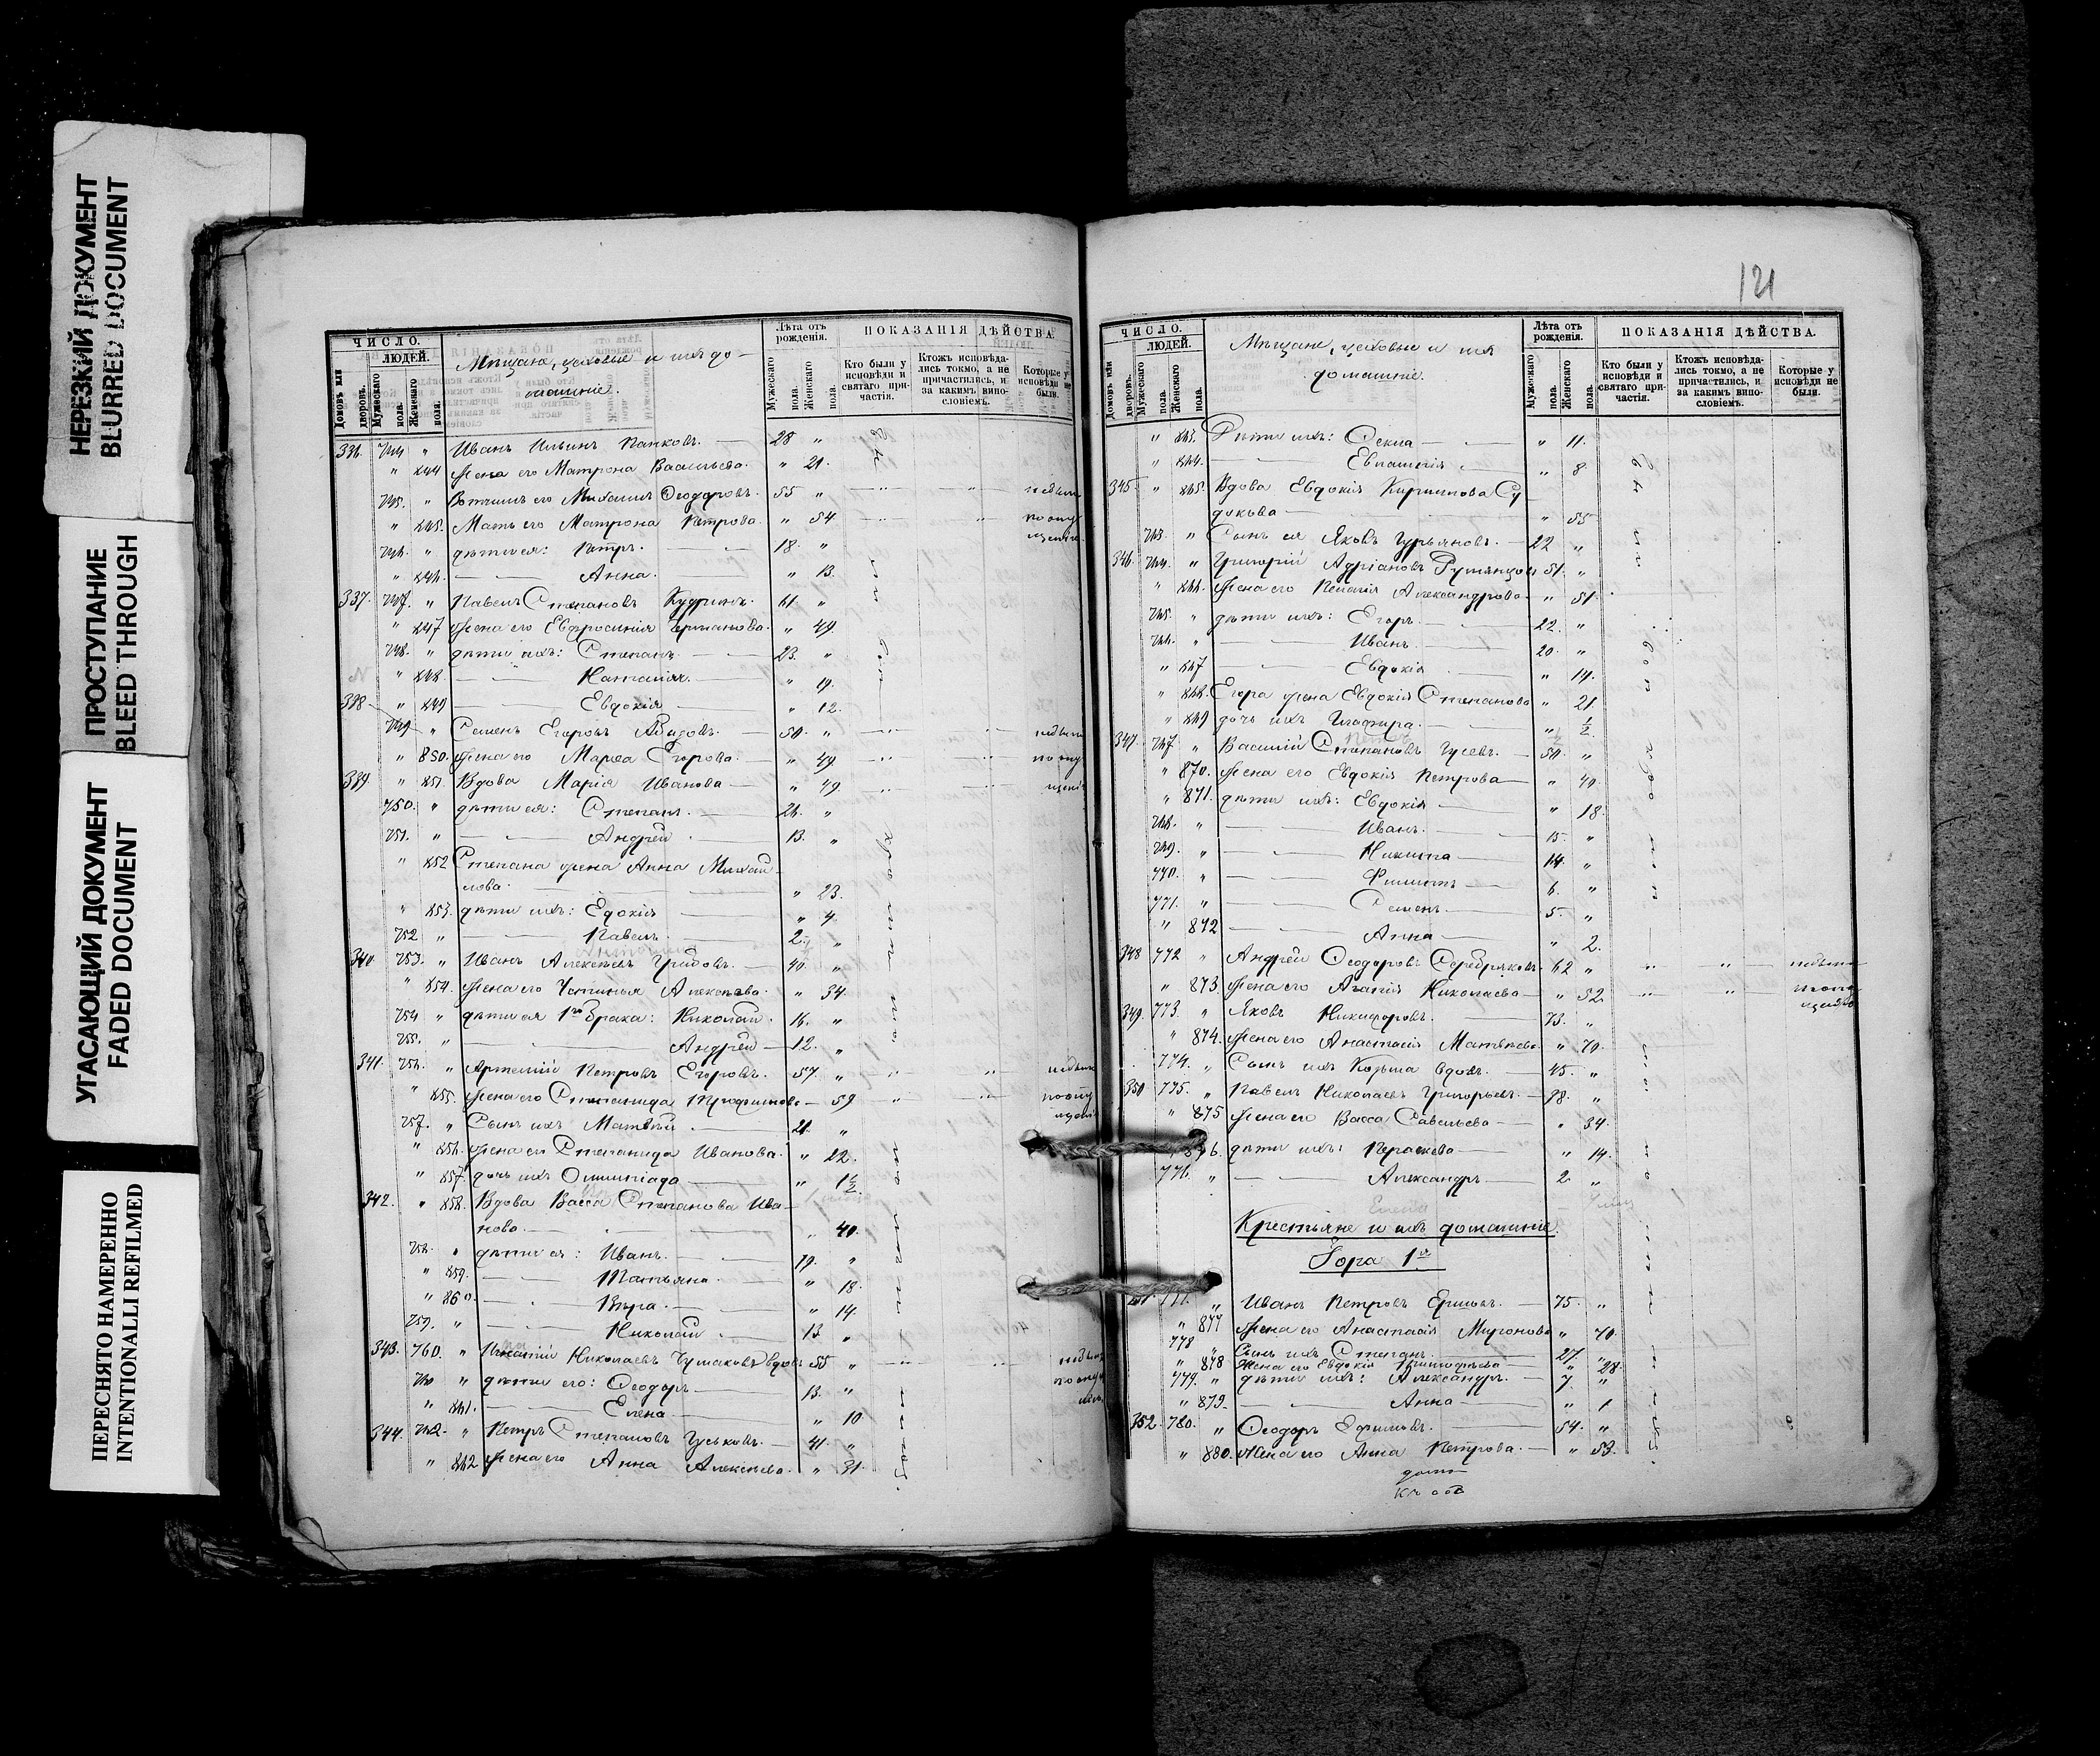 НЕРЕЗКИЙ ДОКУМЕНТ
BLURRED DOCUMENT
ПРОСТУПАНИЕ
BLEED THROUGH
УГАСАЮЩИЙ ДОКУМЕНТ
FADED DOCUMENT
ПЕРЕСНЯТО НАМЕРЕННО
INTENTIONALLI REFILMED
ЧИСЛО.
ЛЮДЕЙ.
Домовъ или дворовъ.
Мужескаго пола.
Женскаго пола.
Мѣщане, цеховые и ихъ до-
машніе.
Лѣта отъ рожденія.
Мужескаго пола.
Женскаго пола.
ПОКАЗАНІЯ ДѢЙСТВА.
Кто были у исповѣди и святаго причастія.
Ктожъ исповѣдались токмо, а не причастились, и за какимъ винословіемъ.
Которые у исповѣди не были.
336. 744 " Иванъ Ильинъ Панковъ. 28 "
" 844 Жена его Матрона Васильева. " 21.
745. " Вотчимъ его Михаилъ Ѳеодоровъ. 55 "
" 845. Мать его Матрона Петрова. " 54.
746. " дѣти ея: Петръ. 18. "
" 846. Анна. " 13.
337. 747. " Павелъ Степановъ Кудринъ. 61. "
" 847 Жена его Евфросинія Германова. " 49.
748. " дѣти ихъ: Степанъ. 23. "
" 848. Наталія. " 19.
338 " 849 Евдокія " 12.
749 " Семенъ Егоровъ 50. "
" 850. Жена его Марѳа Егорова. " 49.
339 " 851. Вдова Марія Иванова " 49
750. " дѣти ея: Степанъ. 26. "
751. " Андрей 13. "
" 852 Степана жена Анна Михай
лова. " 23.
" 853. дѣти ихъ: Едокія " 4.
752 " Павелъ. 2. "
340. 753. " Иванъ Алексѣевъ Грибовъ. 40. "
" 854. Жена его Устинья Алексѣева. " 34.
754 " дѣти ея 1го брака: Николай. 16. "
755. " Андрей 12. "
341. 756. " Артемій Петровъ Егоровъ. 57. "
" 855. Жена его Степанида Трофимова " 59
757. " Сынъ ихъ Матвѣй 21. "
" 856. Жена его Степанида Иванова. " 22.
" 857. дочь ихъ Олимпіада " 1½
342. " 858. Вдова Васса Степанова Ива-
нова. " 40.
758. " дѣти ея: Иванъ. 19. "
" 859. Татьяна. " 18.
" 860. Вѣра. " 14
759. " Николай 13 "
343. 760. " Николаевъ Чумаковъ вдовъ 55 "
761 " дѣти его: Ѳеодоръ 13. "
" 861. Елена. " 10
344. 762. " Петръ Степановъ Гуськовъ. 41. "
" 862 Жена его Анна Алексѣева. " 31.
121
ЧИСЛО.
ЛЮДЕЙ.
Домовъ или дворовъ.
Мужескаго пола.
Женскаго пола.
Мѣщане, цеховые и ихъ
домашніе.
Лѣта отъ рожденія.
Мужескаго пола.
Женскаго пола.
ПОКАЗАНІЯ ДѢЙСТВА.
Кто были у исповѣди и святаго причастія.
Ктожъ исповѣдались токмо, а не причастились, и за какимъ винословіемъ.
Которые у исповѣди не были.
" 863. Дѣти ихъ: Ѳекла " 11.
" 864. Евлампія " 8.
345 " 865. Вдова Евдокія Кириллова Су
докова " 55
763. " Сынъ ея Яковъ Гурьяновъ. 22 "
346. 764. " Григорій Адріановъ Румянцовъ 51. "
" 866. Жена его Пелагія Александрова " 51.
765. " дѣти ихъ: Егоръ 22. "
766. " Иванъ 20. "
" 867 Евдокія " 14.
" 868. Егора жена Евдокія Степанова " 21
" 869 дочь ихъ Глафира. " ½
347. 767 " Василій Степановъ Гусевъ. 50. "
" 870. Жена его Евдокія Петрова " 40.
" 871. дѣти ихъ: Евдокія " 18.
768. " Иванъ 15. "
769. " Никита 14. "
770. " Филиппъ 6. "
771. " Семенъ 5. "
" 872 Анна " 2.
348 772 " Андрей Ѳеодоровъ Серебряковъ. 62 "
" 873. Жена его Агапія Николаева " 52
349. 773. " Яковъ Никифоровъ. 73. "
" 874. Жена его Анастасія Матвѣева " 70.
774. " Сынъ ихъ Козьма вдовъ. 45. "
350 775. " Павелъ Николаевъ Григорьевъ. 38. "
" 875 Жена его Васса Савельева " 34.
876. дѣти ихъ: Параскева " 14.
776. " Александръ 2. "
Крестьяне и ихъ домашніе.
Гора 1я
" Иванъ Петровъ Ершовъ. 75. "
" 877 Жена его Анастасія Миронова " 70.
778 Сынъ ихъ Степанъ. 27 "
" 878 Жена его Евдокія " 28.
779. " дѣти ихъ: Александръ. 7. "
" 879. Анна " 1
352. 780. " Ѳеодоръ Ефимовъ. 54. "
" 880. Жена его Анна Петрова. " 53.